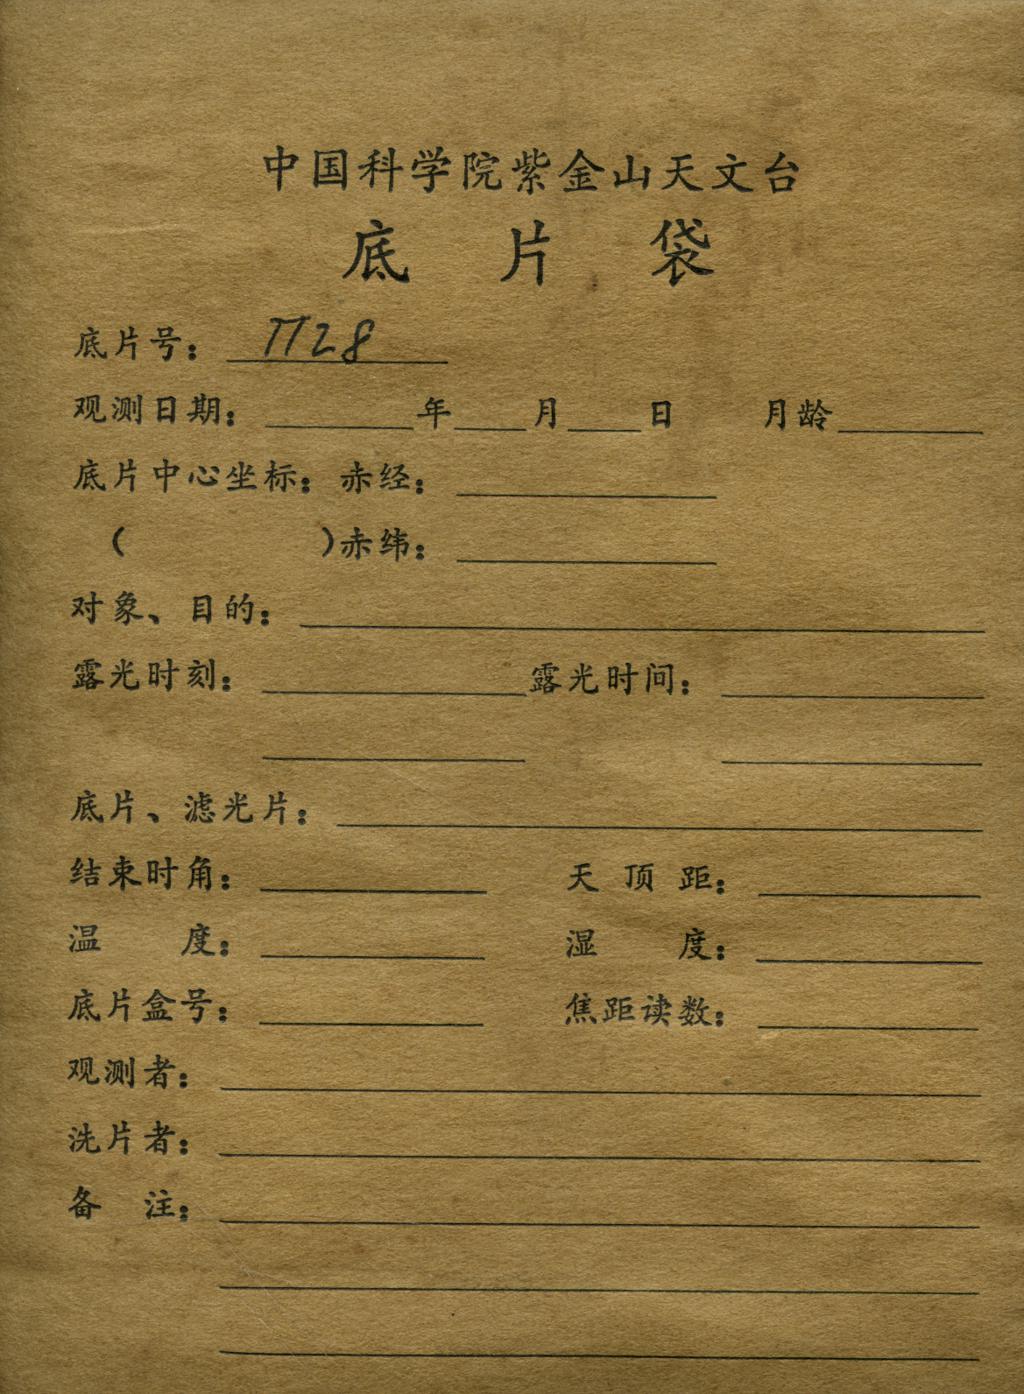 中国科学院紫金山天文台
底 片 袋
底片号：
观测日期： 年 月 日 月龄
底片中心坐标：赤经：
（ ）赤纬：
对象、目的：
露光时刻： 露光时间：
底片、滤光片：
结束时角： 天 顶 距：
温 度： 湿 度：
底片盒号： 焦距读数：
观测者：
洗片者：
备 注：